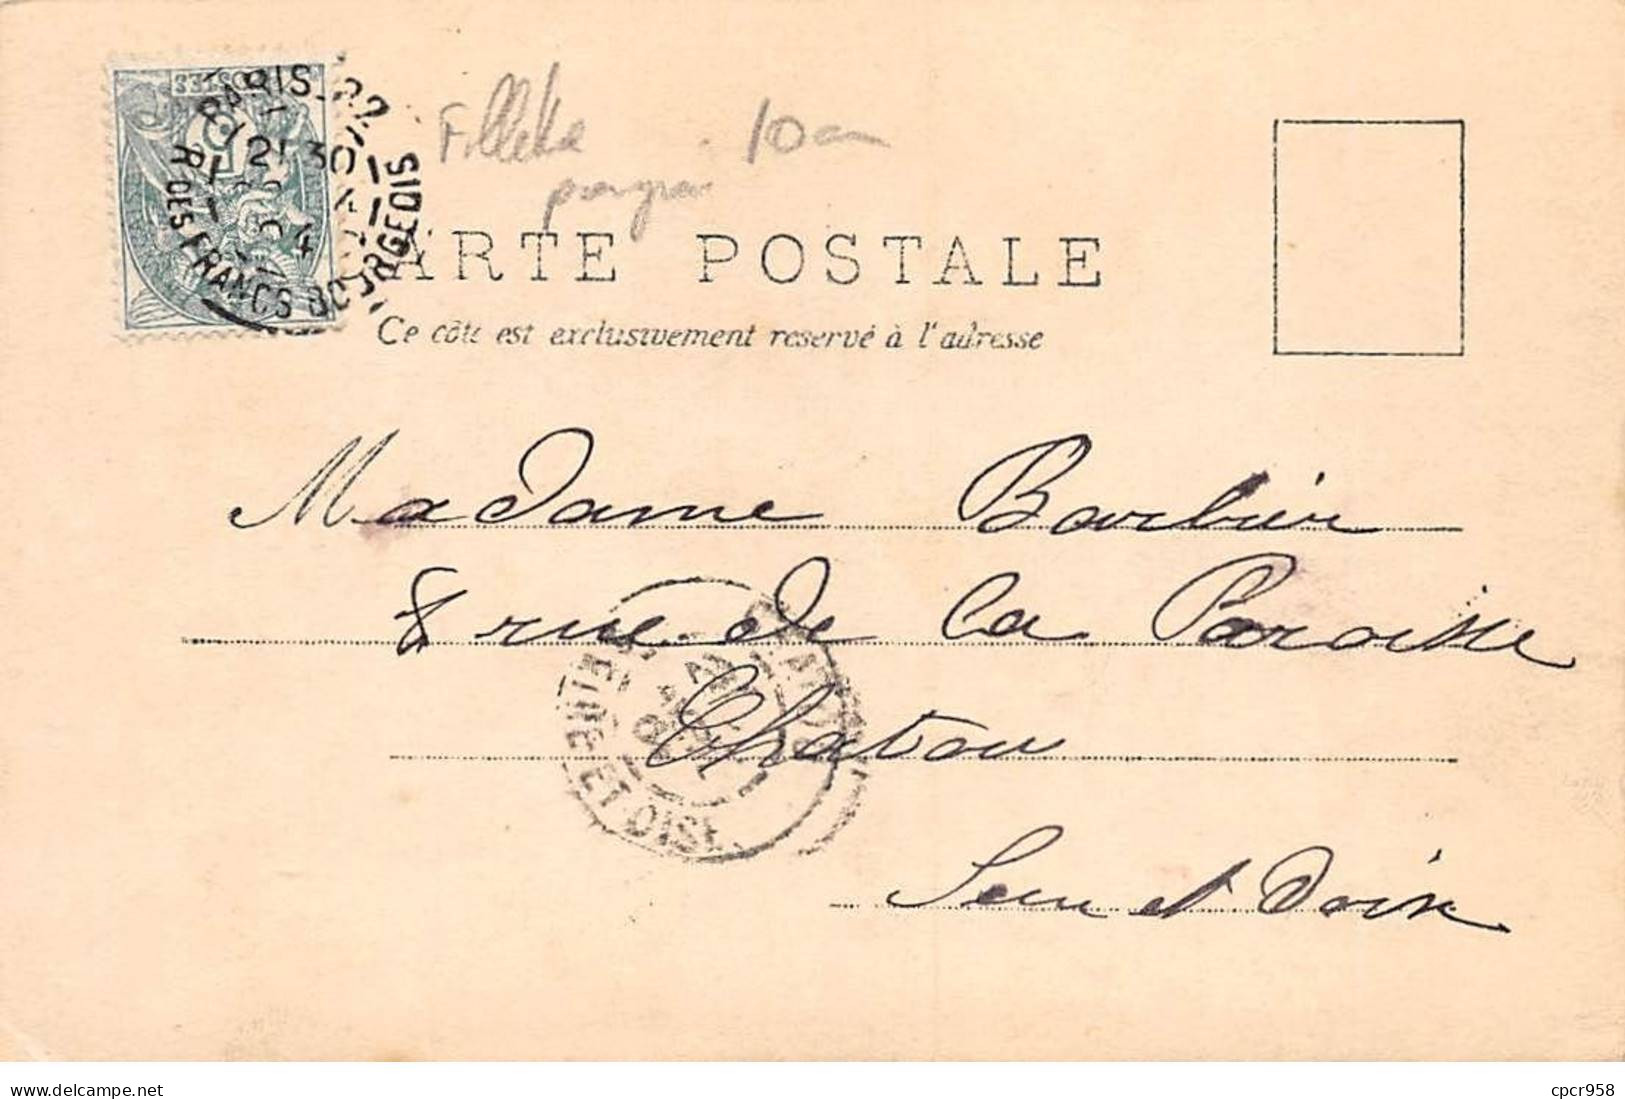 PARIS.22
R. DES FRANCS BOURGEOIS
Fillette 10
CARTE POSTALE
Ce côté est exclusivement réservé à l'adresse
Madame Barbier
8 rue de la Paroisse
Chatou
SEINE-ET-OISE
Seine et Oise
cpcr958